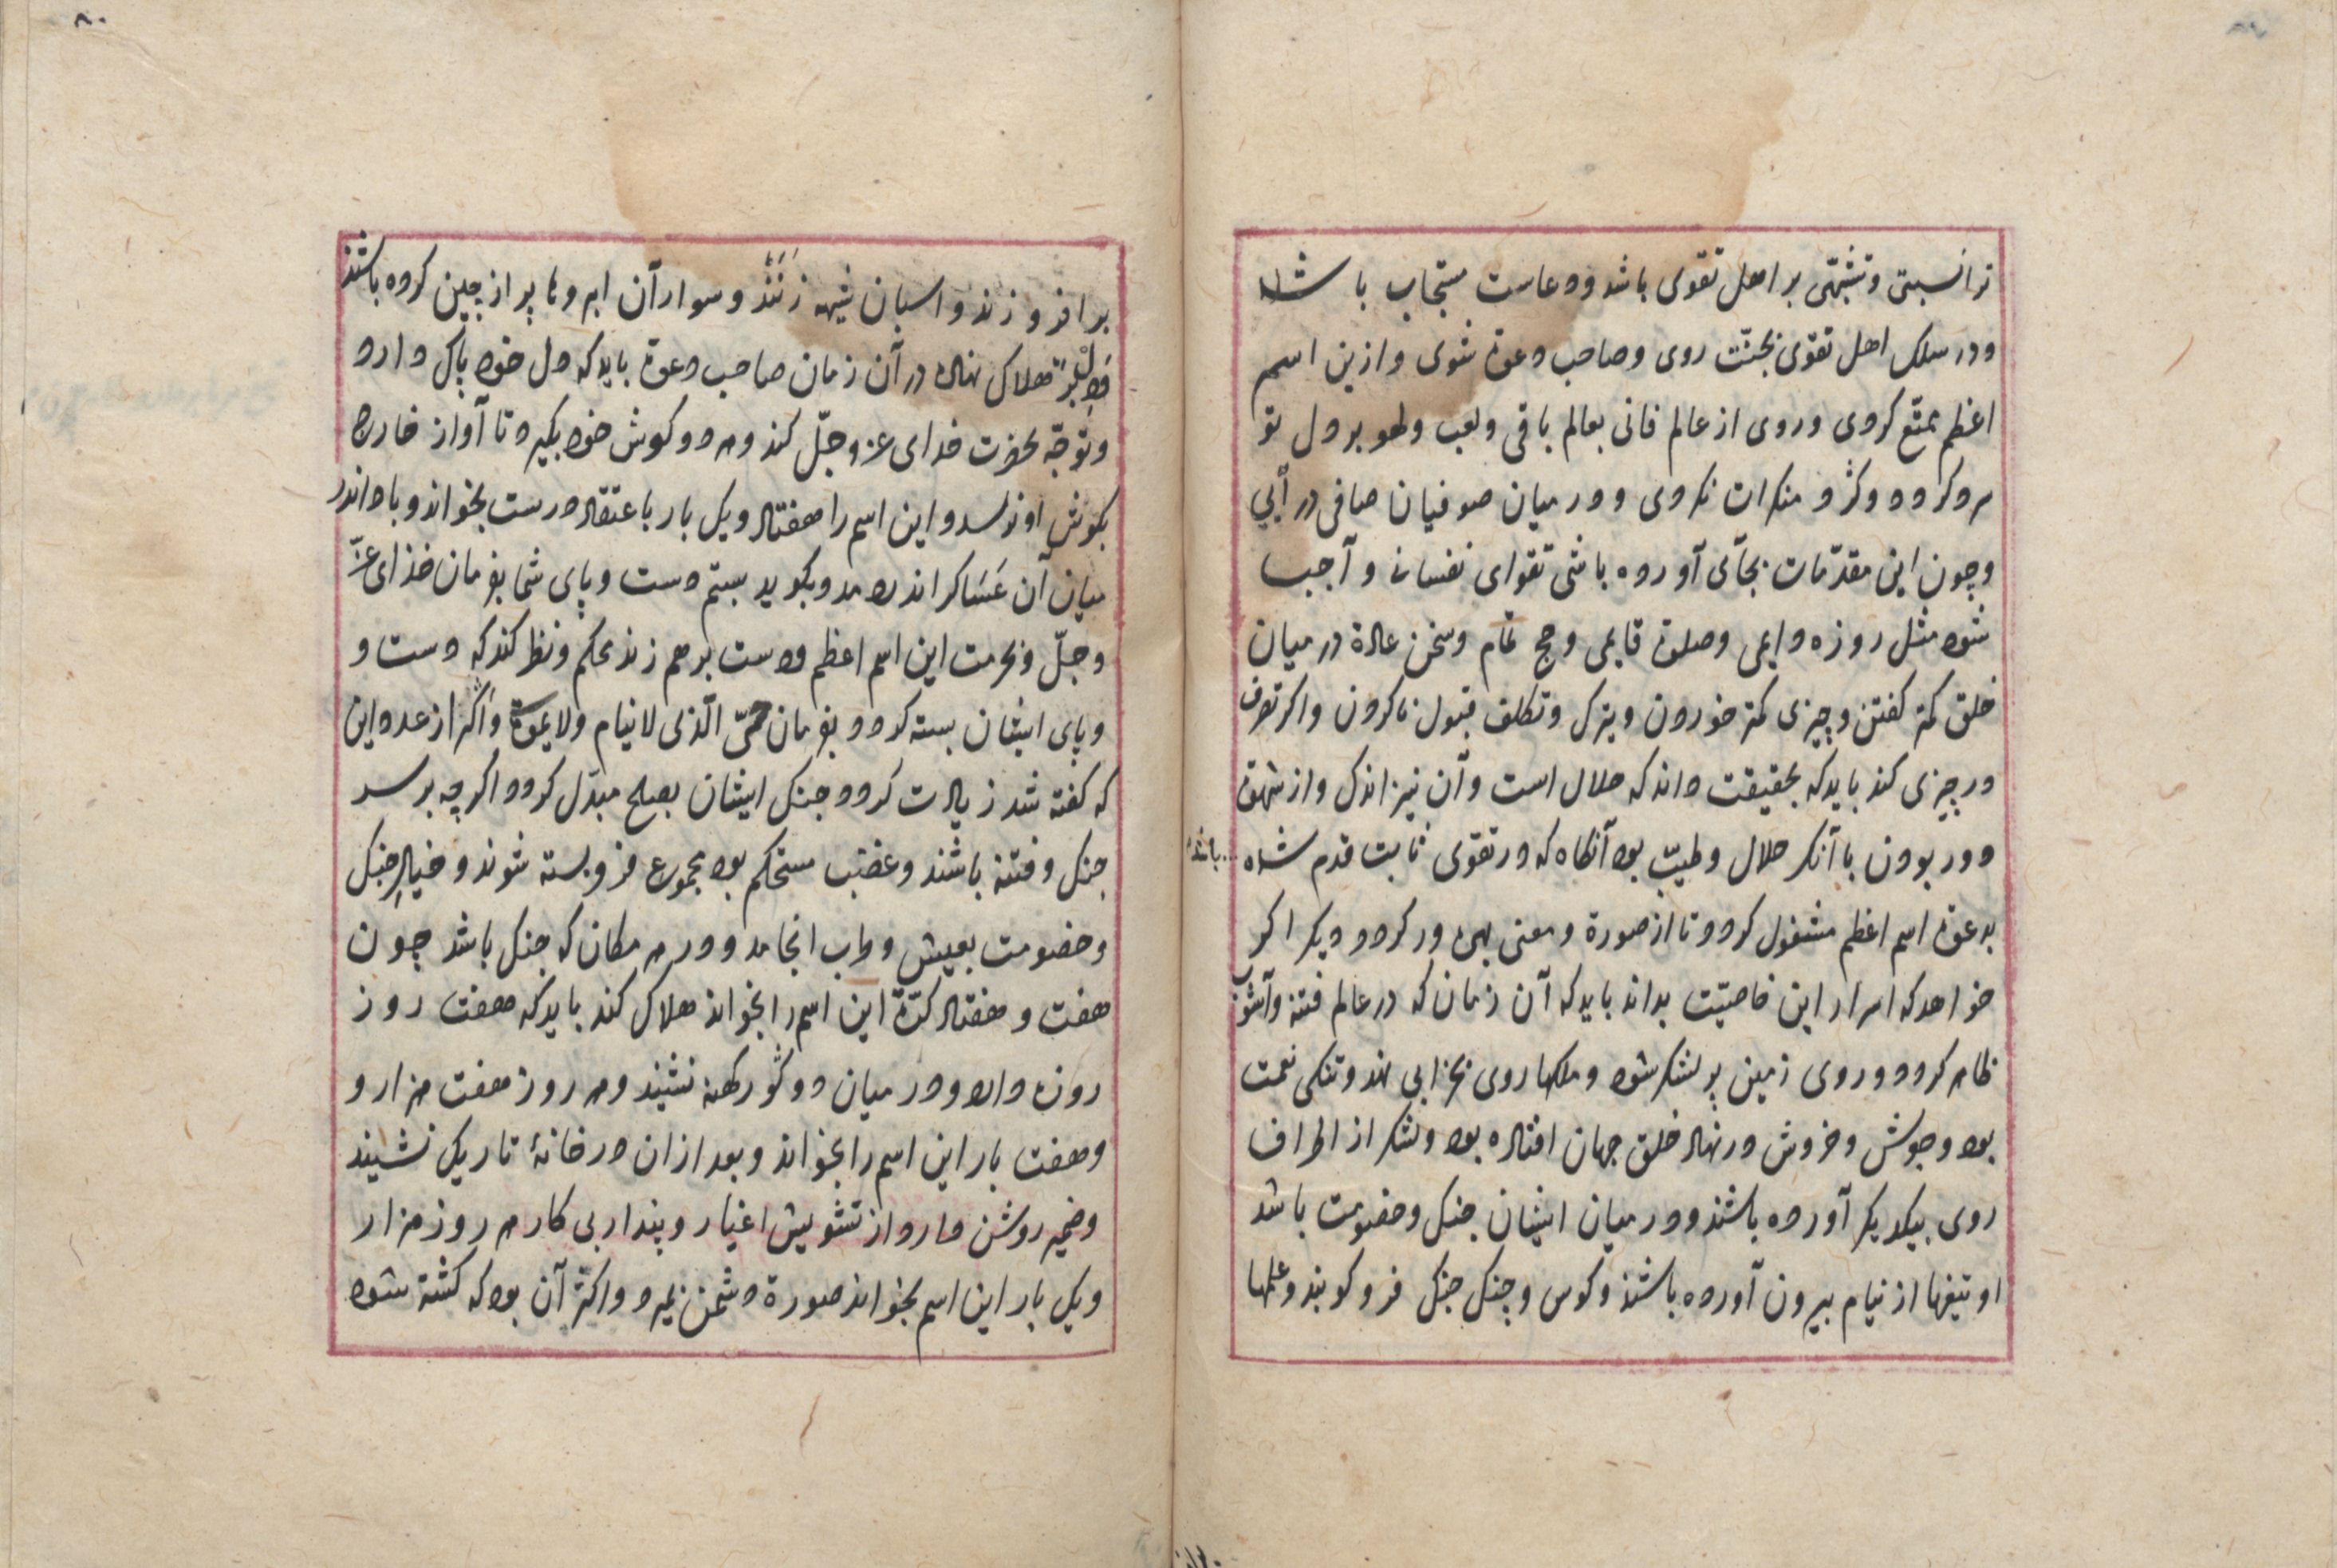 ترا نسبتی و تشبّهی بر اهل تقوی باشد و دعاست مستجاب باشد
و در سلک اهل تقوی بجنّت روی و صاحب دعوة شوی و ازین اسم
اعظم تمتّع کردی و روی از عالم فانی بعالم باقی و لعب و لهو بر دل تو
سرد کردد و کرد منکرات نکردی و در میان صوفیان صافی در آیی
و چون این مقدّمات بجآی آورده باشی تقوای نفسانی و آجب
شود مثل روزه دایمی و صلوة قایمی و حج تمام و سخن عادة در میان
خلق کمتر کفتن و چیزی کمتر خوردن و بترک و تکلف قبول ناکردن و اکر تصرف
در چیزی کند باید که بحقیقت داند که حلال است و آن نیز اندک و از شهوة
دور بودن با آنکه حلال و طیّب بود آنکاه که در تقوی ثابت قدم شده باشد
بدعوة اسم اعظم مشغول کردد تا از صورة و معنی بهره‌ور کردد دیکر اکر
خواهد که اسرار این خاصیّت بداند باید که آن زمان که در عالم فتنه و آشوب
ظاهر کردد و روی زمین پر لشکر شود و ملکها روی بخرابی نهد و تنکی نعمت
بود و جوش و خروش در نهاد خلق جهان افتاده بود و لشکر از اطراف
روی بیکدیکر آورده باشند و در میان ایشان جنک و خصومت باشد
او تیغها از نیام بیرون آورده باشند و کوس و چنک جنک فرو کوبند و علمها
۸۰
بر افروزند و اسبان شیهه زنند و سواران ابروها پر از چین کرده باشند
هلاک نهاده در آن زمان صاحب دعوة باید که دل خود پاک دارد
و توجّه بحضرت خدای عزوجلّ کند و هر دو کوش خود بکیرد تا آواز خارج
بکوش او نرسد و این اسم را هفتاد و یک بار باعتقاد درست بخواند و باد اندر
میان آن عَسَاکر اندر دمد و بکوید بستم دست و پای شما بفرمان خدای عزّ
و جلّ و بحرمت این اسم اعظم و دست بر هم زند محکم و نظر کند که دست و
و پای ایشان بسته کردد بفرمان حیّ الّذی لا ینام و لا یموت و اکر از عدد این
که کفته شد زیادت کردد جنک ایشان بصلح مبدّل کردد اکر چه بر سر
جنک و فتنه باشند و غضب مستحکم بود مجموع فرو بسته شوند و خیال جنک
و خصومت بعیش و داب انجامد و در هر مکان که جنک باشد چون
هفت و هفتاد کرّة این اسم را بخواند هلاک کند باید که هفت روز
روزه دارد و در میان دو کور کهنه نشیند و هر روز هفت هزار و
و هفت بار این اسم را بخواند و بعد ازان در خانهٔ تاریک نشیند
و ضمیر روشن دارد از تشویش اغیار و پندار بی کار هر روز هزار
و یک بار این اسم بخواند صورة دشمن بمیرد و اکثر آن بود که کشته شود